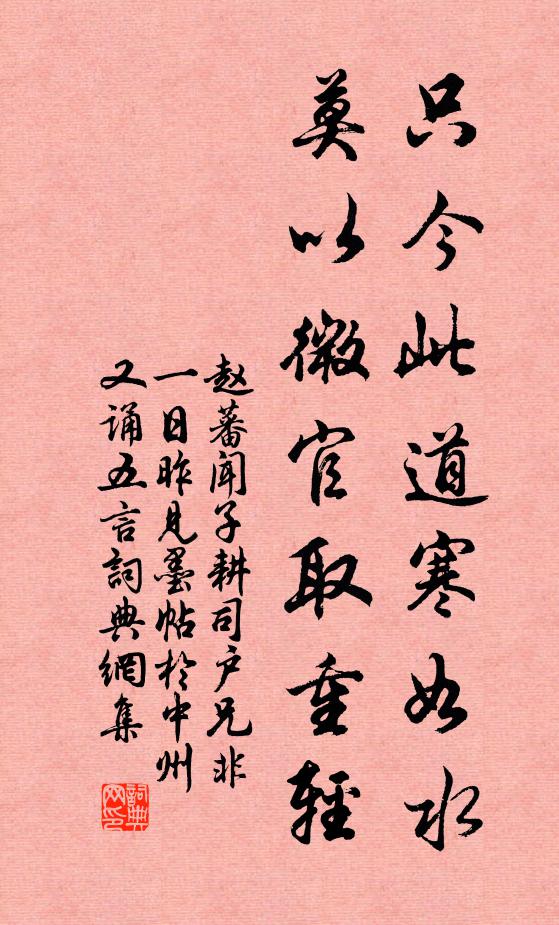 只今此道寒如水
莫以微官取重轻
赵蕃闻子耕司户兄非
一日昨见墨帖于中州
又诵五言詞典網集
詞典
网印